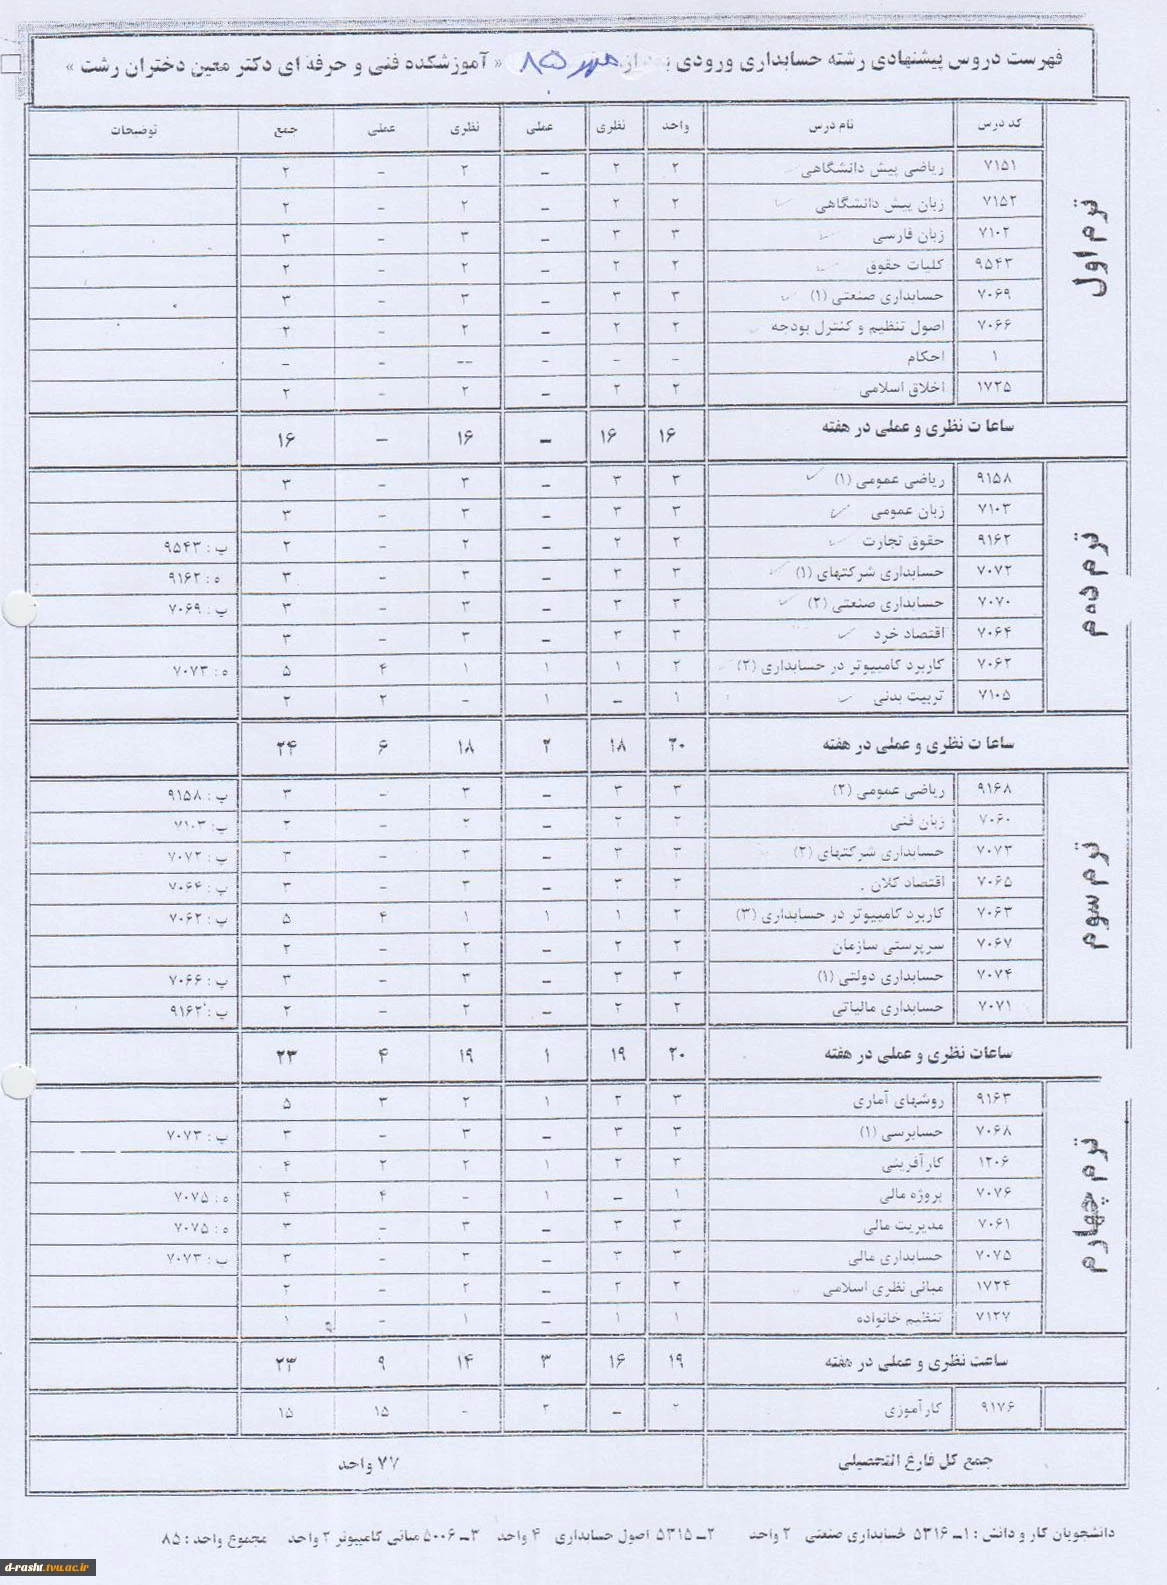 فهرست دروس پیشنهادی رشته حسابداری ورودی بعد از مهر ۸۵ « آموزشکده فنی و حرفه ای دکتر معین دختران رشت »
کد درس نام درس واحد نظری عملی نظری عملی جمع توضیحات
ترم اول
۷۱۵۱ ریاضی پیش دانشگاهی ۲ ۲ – ۲ – ۲
۷۱۵۲ زبان پیش دانشگاهی ۲ ۲ – ۲ – ۲
۷۱۰۲ زبان فارسی ۳ ۳ – ۳ – ۳
۹۵۴۳ کلیات حقوق ۲ ۲ – ۲ – ۲
۷۰۶۹ حسابداری صنعتی (۱) ۳ ۳ – ۳ – ۳
۷۰۶۶ اصول تنظیم و کنترل بودجه ۲ ۲ – ۲ – ۲
۱ احکام – – – -- – –
۱۷۲۵ اخلاق اسلامی ۲ ۲ – ۲ – ۲
ساعات نظری و عملی در هفته ۱۶ ۱۶ – ۱۶ – ۱۶
ترم دوم
۹۱۵۸ ریاضی عمومی (۱) ۳ ۳ – ۳ – ۳
۷۱۰۳ زبان عمومی ۳ ۳ – ۳ – ۳
۹۱۶۲ حقوق تجارت ۲ ۲ – ۲ – ۲ پ : ۹۵۴۳
۷۰۷۲ حسابداری شرکتهای (۱) ۳ ۳ – ۳ – ۳ ه : ۹۱۶۲
۷۰۷۰ حسابداری صنعتی (۲) ۳ ۳ – ۳ – ۳ پ : ۷۰۶۹
۷۰۶۴ اقتصاد خرد ۳ ۳ – ۳ – ۳
۷۰۶۲ کاربرد کامپیوتر در حسابداری (۲) ۲ ۱ ۱ ۱ ۴ ۵ ه : ۷۰۷۳
۷۱۰۵ تربیت بدنی ۱ – ۱ – ۲ ۲
ساعات نظری و عملی در هفته ۲۰ ۱۸ ۲ ۱۸ ۶ ۲۴
ترم سوم
۹۱۶۸ ریاضی عمومی (۲) ۳ ۳ – ۳ – ۳ پ : ۹۱۵۸
۷۰۶۰ زبان فنی ۲ ۲ – ۲ – ۲ پ : ۷۱۰۳
۷۰۷۳ حسابداری شرکتهای (۲) ۳ ۳ – ۳ – ۳ پ : ۷۰۷۲
۷۰۶۵ اقتصاد کلان . ۳ ۳ – ۳ – ۳ پ : ۷۰۶۴
۷۰۶۳ کاربرد کامپیوتر در حسابداری (۳) ۲ ۱ ۱ ۱ ۴ ۵ پ : ۷۰۶۲
۷۰۶۷ سرپرستی سازمان ۲ ۲ – ۲ – ۲
۷۰۷۴ حسابداری دولتی (۱) ۳ ۳ – ۳ – ۳ پ : ۷۰۶۶
۷۰۷۱ حسابداری مالیاتی ۲ ۲ – ۲ – ۲ پ : ۹۱۶۲
ساعات نظری و عملی در هفته ۲۰ ۱۹ ۱ ۱۹ ۴ ۲۳
ترم چهارم
۹۱۶۳ روشهای آماری ۳ ۲ ۱ ۲ ۳ ۵
۷۰۶۸ حسابرسی (۱) ۳ ۳ – ۳ – ۳ پ : ۷۰۷۳
۱۲۰۶ کارآفرینی ۳ ۲ ۱ ۲ ۲ ۴
۷۰۷۶ پروژه مالی ۱ – ۱ – ۴ ۴ ه : ۷۰۷۵
۷۰۶۱ مدیریت مالی ۳ ۳ – ۳ – ۳ ه : ۷۰۷۵
۷۰۷۵ حسابداری مالی ۳ ۳ – ۳ – ۳ پ : ۷۰۷۳
۱۷۲۴ مبانی نظری اسلامی ۲ ۲ – ۲ – ۲
۷۱۲۷ تنظیم خانواده ۱ ۱ – ۱ – ۱
ساعت نظری و عملی در هفته ۱۹ ۱۶ ۳ ۱۴ ۹ ۲۳
۹۱۷۶ کارآموزی ۲ – ۲ – ۱۵ ۱۵
جمع کل فارغ التحصیلی ۷۷ واحد
دانشجویان کار و دانش : ۱ـ ۵۳۱۶ حسابداری صنعتی ۲ واحد ۲ـ ۵۳۱۵ اصول حسابداری ۴ واحد ۳ـ ۵۰۰۶ مبانی کامپیوتر ۲ واحد مجموع واحد : ۸۵
d-rasht.tvu.ac.ir